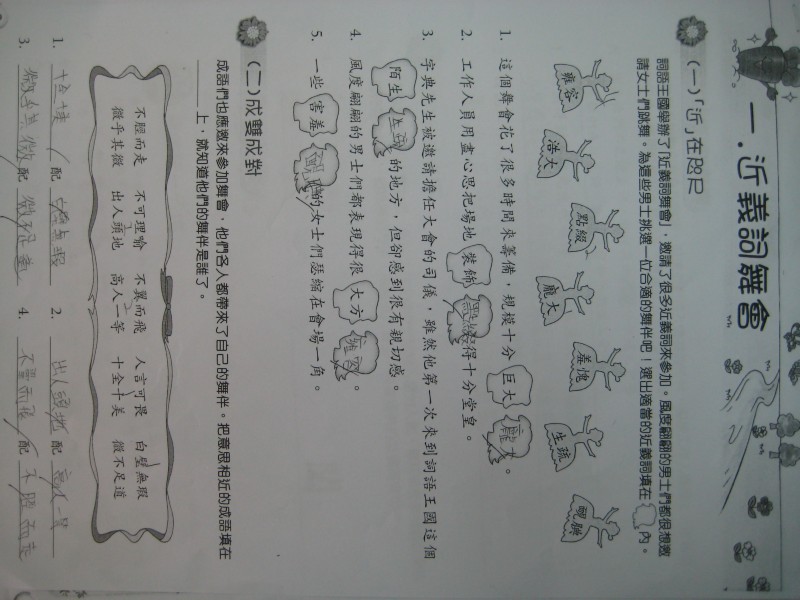 一．近義詞舞會
(一)「近」在咫尺
詞語王國舉辦了「近義詞舞會」，邀請了很多近義詞來參加。風度翩翩的男士們都很想邀
請女士們跳舞。為這些男士挑選一位合適的舞伴吧！選出適當的近義詞填在 內。
雍容 浩大 點綴 龐大 羞愧 生疏 靦腆
1. 這個舞會花了很多時間來籌備，規模十分 巨大 龐大 。
2. 工作人員用盡心思把場地 裝飾 點綴 得十分堂皇。
3. 字典先生被邀請擔任大會的司儀，雖然他第一次來到詞語王國這個
陌生 生疏 的地方，但卻感到很有親切感。
4. 風度翩翩的男士們都表現得很 大方 雍容 。
5. 一些 害羞 靦腆 的女士們瑟縮在會場一角。
(二)成雙成對
成語們也應邀來參加舞會，他們各人都帶來了自己的舞伴。把意思相近的成語填在
上，就知道他們的舞伴是誰了。
不脛而走 不可理喻 不翼而飛 人言可畏 白璧無瑕
微乎其微 出人頭地 高人一等 十全十美 微不足道
1. 配 2. 出人頭地 配 高人一等
3. 微乎其微 配 4. 不翼而飛 配 不脛而走